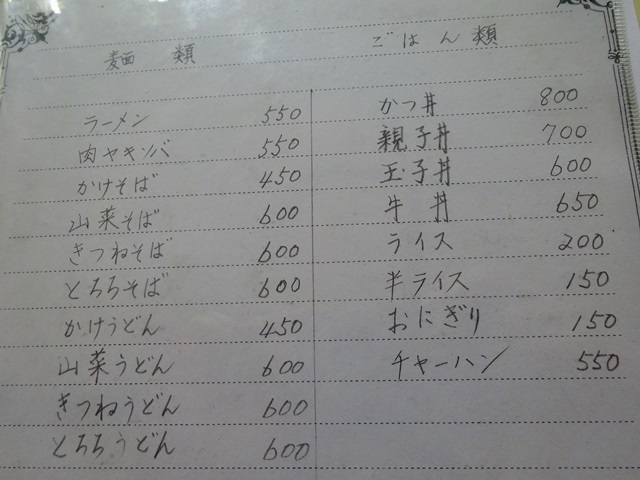 麺類
ラーメン 550
肉ヤキソバ 550
かけそば 450
山菜そば 600
きつねそば 600
とろろそば 600
かけうどん 450
山菜うどん 600
きつねうどん 600
とろろうどん 600
ごはん類
かつ丼 800
親子丼 700
玉子丼 600
牛丼 650
ライス 200
半ライス 150
おにぎり 150
チャーハン 550